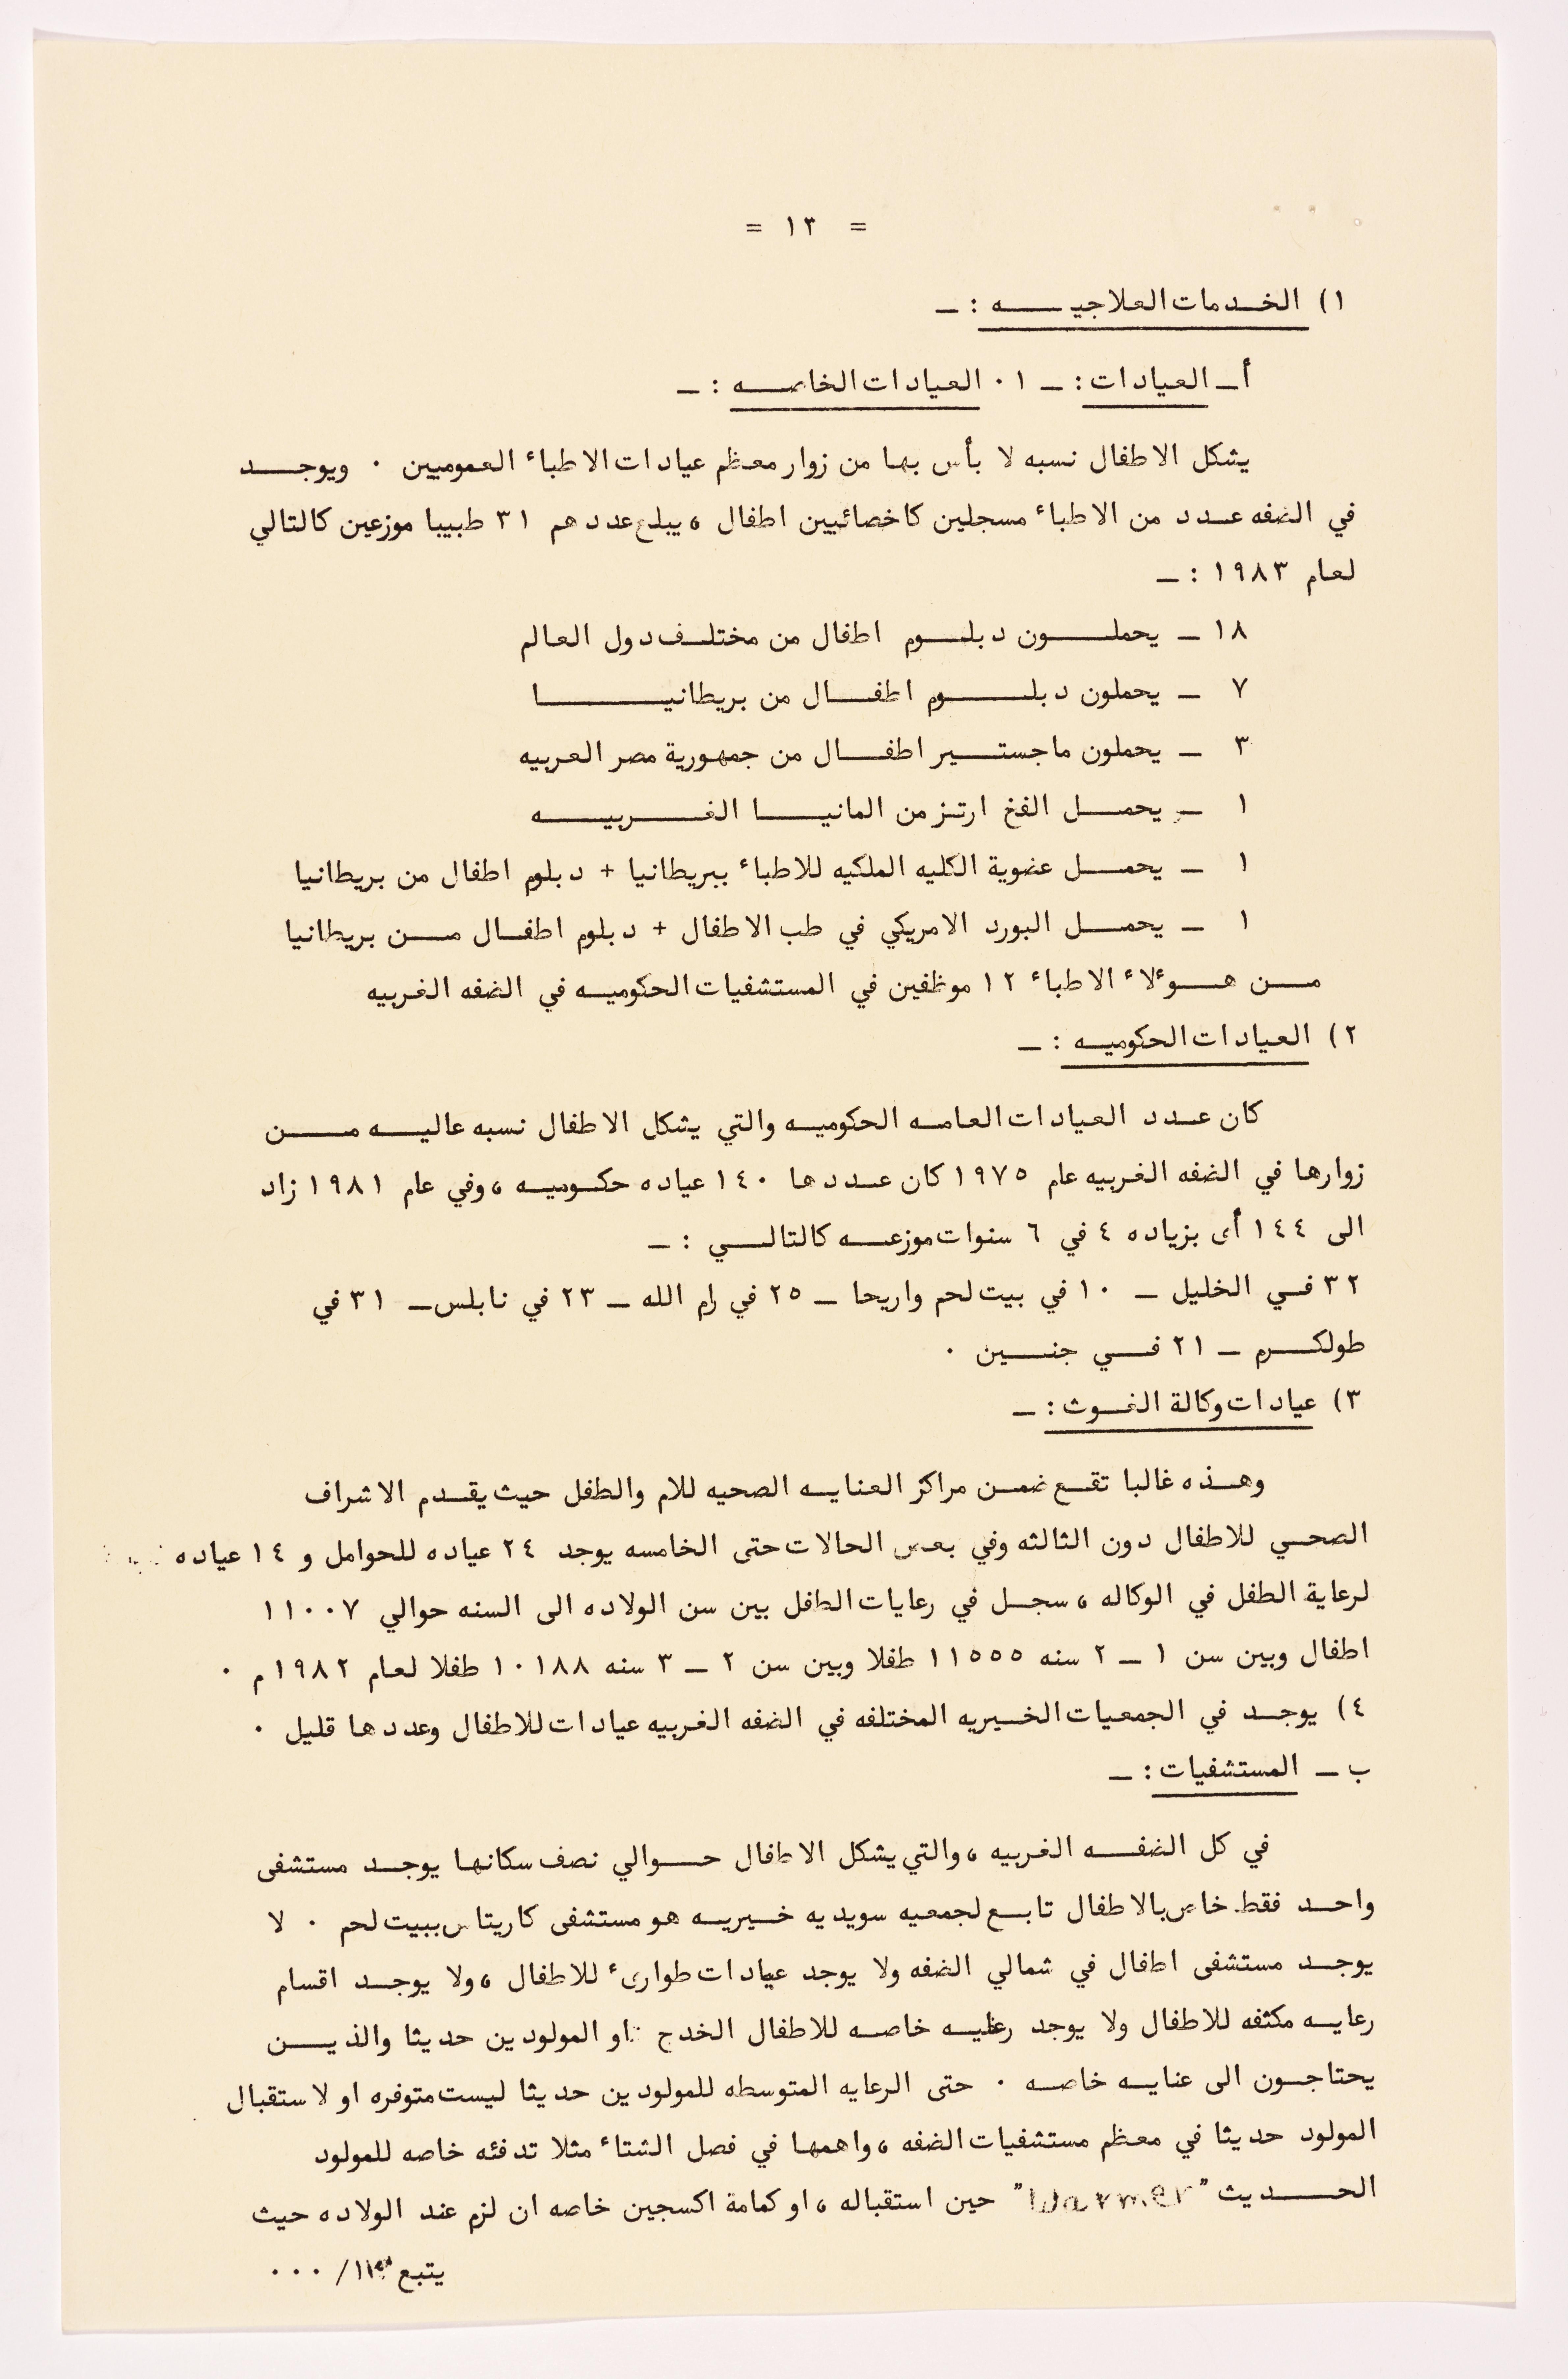 = ١٣ =
١) الخدمات العلاجيه : ــ
أ ــ العيادات : ــ ٠١ العيادات الخاصه : ــ
يشكل الاطفال نسبه لا بأس بها من زوار معظم عيادات الاطباء العموميين ٠ ويوجد
في الضفه عدد من الاطباء مسجلين كاخصائيين اطفال ، يبلغ عددهم ٣١ طبيبا موزعين كالتالي
لعام ١٩٨٣ : ــ
١٨ ــ يحملون دبلوم اطفال من مختلف دول العالم
٧ ــ يحملون دبلوم اطفال من بريطانيا
٣ ــ يحملون ماجستير اطفال من جمهورية مصر العربيه
١ ــ يحمل الفخ ارتز من المانيا الغربيه
١ ــ يحمل عضوية الكليه الملكيه للاطباء ببريطانيا + دبلوم اطفال من بريطانيا
١ ــ يحمل البورد الامريكي في طب الاطفال + دبلوم اطفال من بريطانيا
من هوءلاء الاطباء ١٢ موظفين في المستشفيات الحكوميه في الضفه الغربيه
٢) العيادات الحكوميه : ــ
كان عدد العيادات العامه الحكوميه والتي يشكل الاطفال نسبه عاليه من
زوارها في الضفه الغربيه عام ١٩٧٥ كان عددها ١٤٠ عياده حكوميه ، وفي عام ١٩٨١ زاد
الى ١٤٤ أى بزياده ٤ في ٦ سنوات موزعه كالتالي : ــ
٣٢ في الخليل ــ ١٠ في بيت لحم واريحا ــ ٢٥ في رام الله ــ ٢٣ في نابلس ــ ٣١ في
طولكرم ــ ٢١ في جنين ٠
٣) عيادات وكالة الغوث : ــ
وهذه غالبا تقع ضمن مراكز العنايه الصحيه للام والطفل حيث يقدم الاشراف
الصحي للاطفال دون الثالثه وفي بعض الحالات حتى الخامسه يوجد ٢٤ عياده للحوامل و ١٤ عياده
لرعاية الطفل في الوكاله ، سجل في رعايات الطفل بين سن الولاده الى السنه حوالي ١١٠٠٧
اطفال وبين سن ١ ــ ٢ سنه ١١٥٥٥ طفلا وبين سن ٢ ــ ٣ سنه ١٠١٨٨ طفلا لعام ١٩٨٢ م ٠
٤) يوجد في الجمعيات الخيريه المختلفه في الضفه الغربيه عيادات للاطفال وعددها قليل ٠
ب ــ المستشفيات : ــ
في كل الضفه الغربيه ، والتي يشكل الاطفال حوالي نصف سكانها يوجد مستشفى
واحد فقط خاص بالاطفال تابع لجمعيه سويديه خيريه هو مستشفى كاريتاس ببيت لحم ٠ لا
يوجد مستشفى اطفال في شمالي الضفه ولا يوجد عيادات طوارىء للاطفال ، ولا يوجد اقسام
رعايه مكثفه للاطفال ولا يوجد خاصه للاطفال الخدج او المولودين حديثا والذين
يحتاجون الى عنايه خاصه ٠ حتى الرعايه المتوسطه للمولودين حديثا ليست متوفره او لاستقبال
المولود حديثا في معظم مستشفيات الضفه ، واهمها في فصل الشتاء مثلا تدفئه خاصه للمولود
الحديث "Warmer" حين استقباله ، او كمامة اكسجين خاصه ان لزم عند الولاده حيث
يتبع /٠٠٠